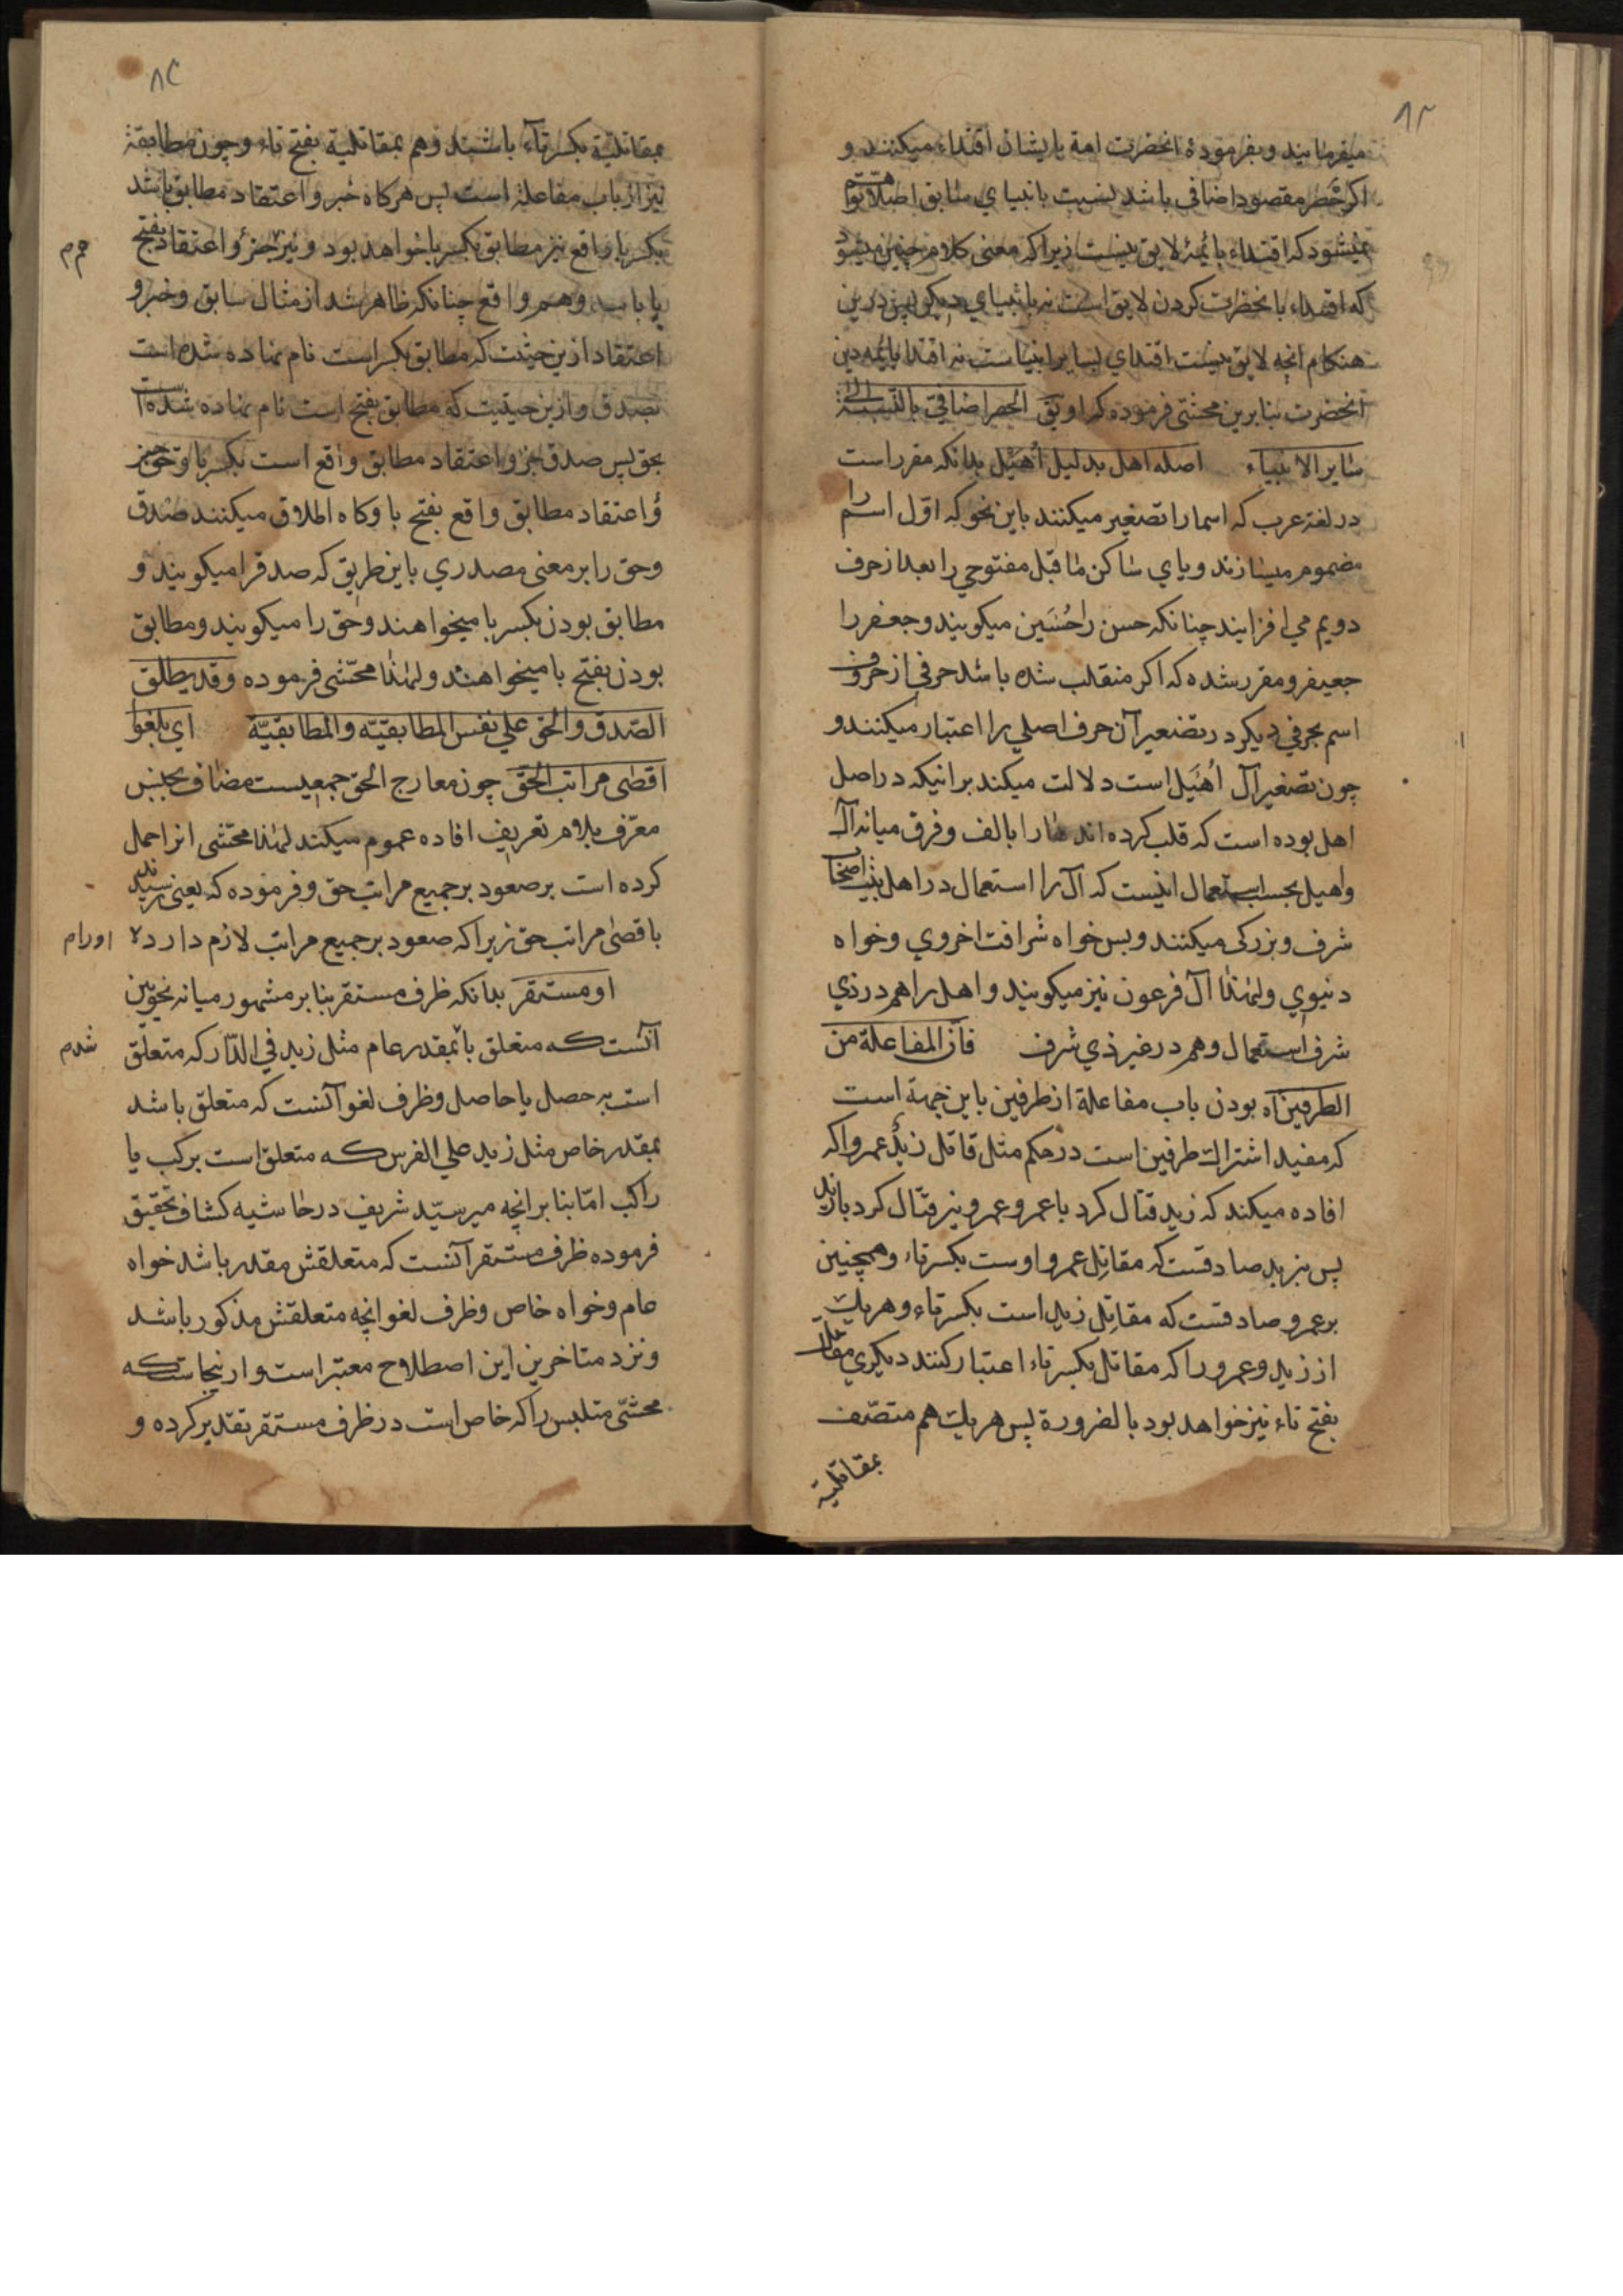 ۸۳
میفرمایند و بفرمودۀ انحضرت امة بایشان اقتداء میکنند و
اکر حصر مقصود اضافی باشد نسبت بانبیای سابق اصلا توهم
نمیشود که اقتداء بائمه لایق نیست زیرا که معنی کلام چنین میشود
که اقتداء بانحضرت کردن لایق است نه بانبیای دیکر پس درین
هنکام انچه لایق نیست اقتدای بسایر انبیاست نه اقتدا بائمه دین
انحضرت بنابرین محشی فرموده که او یق الحصر اضافی بالنسبة الی
سایر الانبیاء اصله اهل بدلیل اُهَیل بدانکه مقرر است
در لغة عرب که اسما را تصغیر میکنند باین نحو که اوّل اسم را
مضموم میسازند و یای ساکن ماقبل مفتوحی را بعد از حرف
دویم می افزایند چنانکه حسن را حُسَین میکویند و جعفر را
جعیفر و مقرر شده که اکر منقلب شده باشد حرفی از حروف
اسم بحرفی دیکر در تصغیر آن حرف اصلی را اعتبار میکنند و
چون تصغیر آل اُهَیل است دلالت میکند برانیکه در اصل
اهل بوده است که قلب کرده اند ها را بالف و فرق میانه آل
و اهیل بحسب استعمال اینست که آل را استعمال در اهل بیت اصحاب
شرف و بزرکی میکنند و بس خواه شرافت اخروی و خواه
دنیوی و لهٰذا آل فرعون نیز میکویند و اهل را هم در ذی
شرف استعمال و هم در غیر ذی شرف فانّ المفاعلة من
الطرفین اه بودن باب مفاعلة از طرفین باین جهة است
که مفید اشتراک طرفین است در حکم مثل قاتل زیدٌ عمروا که
افاده میکند که زید قتال کرد با عمرو و عمرو نیز قتال کرد با زید
پس بزید صادقست که مقاتِل عمرو اوست بکسر تاء و همچنین
بر عمرو صادقست که مقاتِل زید است بکسر تاء و هر یک
از زید و عمرو را که مقاتل بکسر تاء اعتبار کنند دیکری مقاتل
بفتح تاء نیز خواهد بود بالضرورة پس هر یک هم متصّف
بمقاتلیة
۸۴
بمقاتلیة بکسر تاء باشند و هم بمقاتلیة بفتح تاء و چون مطابقة
نیز از باب مفاعلة است پس هرکاه خبر و اعتقاد مطابق باشد
بکسر با واقع نیز مطابق بکسر با خواهد بود و نیز خبر و اعتقاد بفتح
با باشد و هم واقع چنانکه ظاهر شد از مثال سابق و خبر و
اعتقاد ازین حیثیت که مطابق بکسر است نام نهاده شده است
بصدق و ازین حیثیت که مطابق بفتح است نام نهاده شده است
بحق پس صدق خبر و اعتقاد مطابق واقع است بکسر با و حق خبر
و اعتقاد مطابق واقع بفتح با و کاه اطلاق میکنند صدق
و حق را بر معنی مصدری باین طریق که صدق را میکویند و
مطابق بودن بکسر با میخواهند و حق را میکویند و مطابق
بودن بفتح با میخواهند و لهٰذا محشّی فرموده و قد یطلق
الصّدق و الحق علی نفس المطابقیّه و المطابقیّة ای بلغوا
اقصٰی مراتب الحق چون معارج الحق جمعیست مضاف بجنس
معرّف بلام تعریف افاده عموم میکند لهٰذا محشّی انرا حمل
کرده است بر صعود بر جمیع مراتب حق و فرموده که یعنی رسیدند
باقصی مراتب حق زیرا که صعود بر جمیع مراتب لازم دارد
او مستقر بدانکه ظرف مستقر بنابر مشهور میانه نحویین
آنست که متعلق باشد بمقدر عام مثل زید فی الدّار که متعلّق
است به حصل یا حاصل و ظرف لغو آنست که متعلق باشد
بمقدر خاص مثل زید علی الفرس که متعلق است برکب یا
راکب امّا بنابر انچه میر سیّد شریف در حاشیه کشاف تحقیق
فرموده ظرف مستقر آنست که متعلقش مقدر باشد خواه
عام و خواه خاص و ظرف لغو انچه متعلقش مذکور باشد
و نزد متاخرین این اصطلاح معتبر است و ازینجاست که
محشّی متلبس را که خاص است در ظرف مستقر تقدیر کرده و